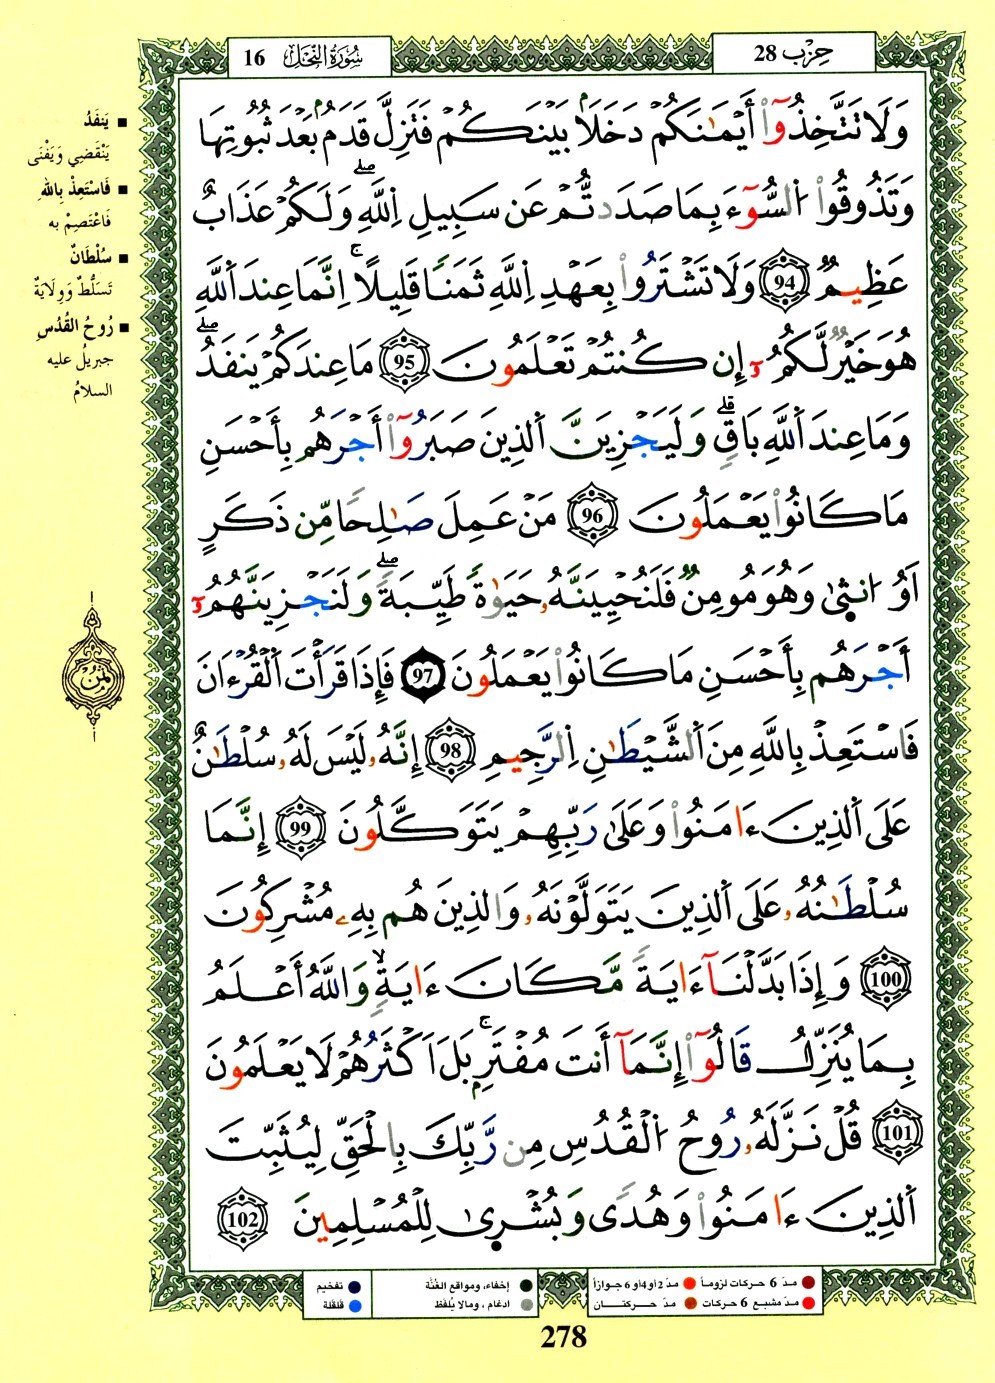 حِزْب 28
سُورَةُ النَّحْل 16
وَلَا تَتَّخِذُوٓاْ أَيْمَٰنَكُمْ دَخَلَۢا بَيْنَكُمْ فَتَزِلَّ قَدَمُۢ بَعْدَ ثُبُوتِهَا
وَتَذُوقُواْ اُ۬لسُّوٓءَ بِمَا صَدَدتُّمْ عَن سَبِيلِ اِ۬للَّهِۖ وَلَكُمْ عَذَابٌ
عَظِيمٌۖ 94 وَلَا تَشْتَرُواْ بِعَهْدِ اِ۬للَّهِ ثَمَنًا قَلِيلًاۚ اِنَّمَا عِندَ اَ۬للَّهِ
هُوَ خَيْرٌ لَّكُمُۥٓ إِن كُنتُمْ تَعْلَمُونَ 95 مَا عِندَكُمْ يَنفَدُۖ
وَمَا عِندَ اَ۬للَّهِ بَاقٖۗ وَلَيَجْزِيَنَّ اَ۬لذِينَ صَبَرُوٓاْ أَجْرَهُم بِأَحْسَنِ
مَا كَانُواْ يَعْمَلُونَ 96 مَنْ عَمِلَ صَٰلِحًا مِّن ذَكَرٍ
اَوُ ا۟نث۪ىٰ وَهُوَ مُومِنٌ فَلَنُحْيِيَنَّهُۥ حَيَوٰةً طَيِّبَةًۖ وَلَنَجْزِيَنَّهُمُۥٓ
أَجْرَهُم بِأَحْسَنِ مَا كَانُواْ يَعْمَلُونَ 97 فَإِذَا قَرَأْتَ اَ۬لْقُرْءَانَ
فَاسْتَعِذْ بِاللَّهِ مِنَ اَ۬لشَّيْطَٰنِ اِ۬لرَّجِيمِ 98 إِنَّهُۥ لَيْسَ لَهُۥ سُلْطَٰنٌ
عَلَى اَ۬لذِينَ ءَامَنُواْ وَعَلَىٰ رَبِّهِمْ يَتَوَكَّلُونَ 99 إِنَّمَا
سُلْطَٰنُهُۥ عَلَى اَ۬لذِينَ يَتَوَلَّوْنَهُۥ وَالذِينَ هُم بِهِۦ مُشْرِكُونَ
100 وَإِذَا بَدَّلْنَآ ءَايَةً مَّكَانَ ءَايَةٍۙ وَاللَّهُ أَعْلَمُ
بِمَا يُنَزِّلُ قَالُوٓاْ إِنَّمَآ أَنتَ مُفْتَرِۢۚ بَلَ اَكْثَرُهُمْ لَا يَعْلَمُونَ
101 قُلْ نَزَّلَهُۥ رُوحُ اُ۬لْقُدُسِ مِن رَّبِّكَ بِالْحَقِّ لِيُثَبِّتَ
اَ۬لذِينَ ءَامَنُواْ وَهُدًى وَبُشْر۪ىٰ لِلْمُسْلِمِينَ 102
■ يَنفَدُ
يَنْقَضِي وَيَفْنَى
■ فَاسْتَعِذْ بِاللهِ
فَاعْتَصِمْ به
■ سُلْطَانٌ
تَسَلُّطٌ وَوِلَايَةٌ
■ رُوحُ القُدُسِ
جبريلُ عليه
السلامُ
ثمن
مدّ 6 حركات لزوماً ● مدّ 2 أو 4 أو 6 جوازاً
مدّ مشبع 6 حركات ● مدّ حركتان
إخفاء، ومواقع الغُنَّة
ادغام، ومالا يُلفَظ
تفخيم
قلقلة
278